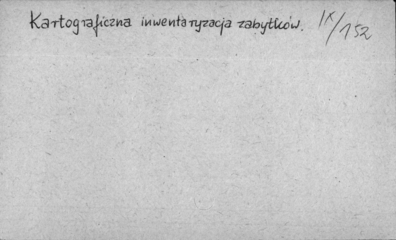 Kartograficzna inwentaryzacja zabytków. IX/152